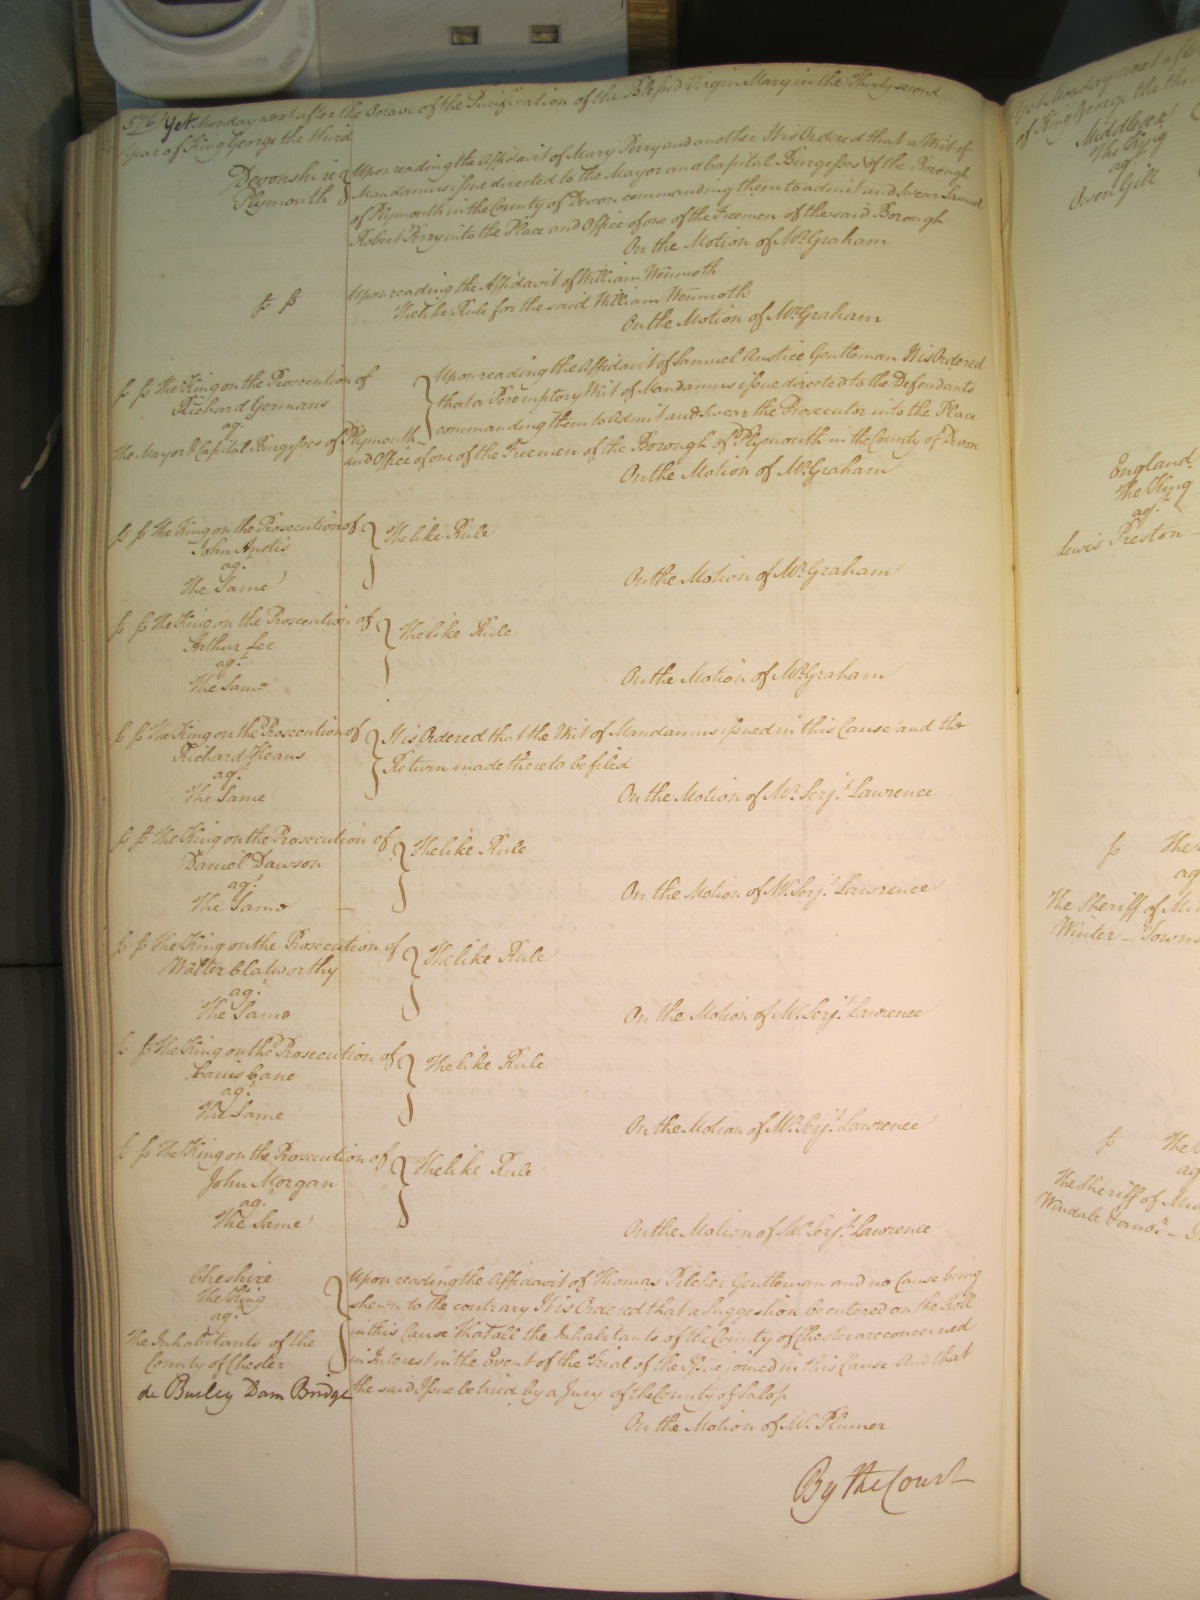 576 Yet Monday next after the Octave of the Purification of the Blessed Virgin Mary in the Thirty second
Year of King George the third
Devonshire
Plymouth
Upon reading the Affidavit of Mary Perry and another It is Ordered that a Writ of
Mandamus issue directed to the Mayor and Capital Burgesses of the Borough
of Plymouth in the County of Devon commanding them to admit and swear Samuel
Robert Perry into the Place and Office of one of the Freemen of the said Borough
On the Motion of Mr. Graham
Upon reading the Affidavit of William Wenmoth
The like Rule for the said William Wenmoth
On the Motion of Mr. Graham
The King on the Prosecution of
Richard Germans
agt.
The Mayor & Capital Burgesses of Plymouth
Upon reading the Affidavit of Samuel Anstice Gentleman It is Ordered
that a Peremptory Writ of Mandamus issue directed to the Defendants
commanding them to Admit and Swear the Prosecutor into the Place
and Office of one of the Freemen of the Borough of Plymouth in the County of Devon
On the Motion of Mr. Graham
The King on the Prosecution of
John Anstis
agt.
The Same
The like Rule
On the Motion of Mr. Graham
The King on the Prosecution of
Arthur Lee
agt.
The Same
The like Rule
On the Motion of Mr. Graham
The King on the Prosecution of
Richard Heans
agt.
The Same
It is Ordered that the Writ of Mandamus issued in this Cause and the
Return made thereto be filed
On the Motion of Mr. Serjt. Lawrence
The King on the Prosecution of
Daniel Dawson
agt.
The Same
The like Rule
On the Motion of Mr. Serjt. Lawrence
The King on the Prosecution of
Walter Clatworthy
agt.
The Same
The like Rule
On the Motion of Mr. Serjt. Lawrence
The King on the Prosecution of
Cane
agt.
The Same
The like Rule
On the Motion of Mr. Serjt. Lawrence
The King on the Prosecution of
John Morgan
agt.
The Same
The like Rule
On the Motion of Mr. Serjt. Lawrence
Cheshire
The King
agt.
The Inhabitants of the
County of Chester
de Burley Dam Bridge
Upon reading the Affidavit of Thomas Pilcher Gentleman and no Cause being
shewn to the contrary It is Ordered that a Suggestion be entered on the Roll
in this Cause That all the Inhabitants of the County of Chester are concerned
in Interest in the Event of the Trial of the Issue joined in this Cause And that
the said Issue be tried by a Jury of the County of Salop
On the Motion of Mr. Plumer
By the Court
Yet Monday next
of King George the
Middlesex
The King
agt.
Owen Gill
England
The King
agt.
Lewis Preston
The Sheriff of
Winter
The Sheriff of
Windale